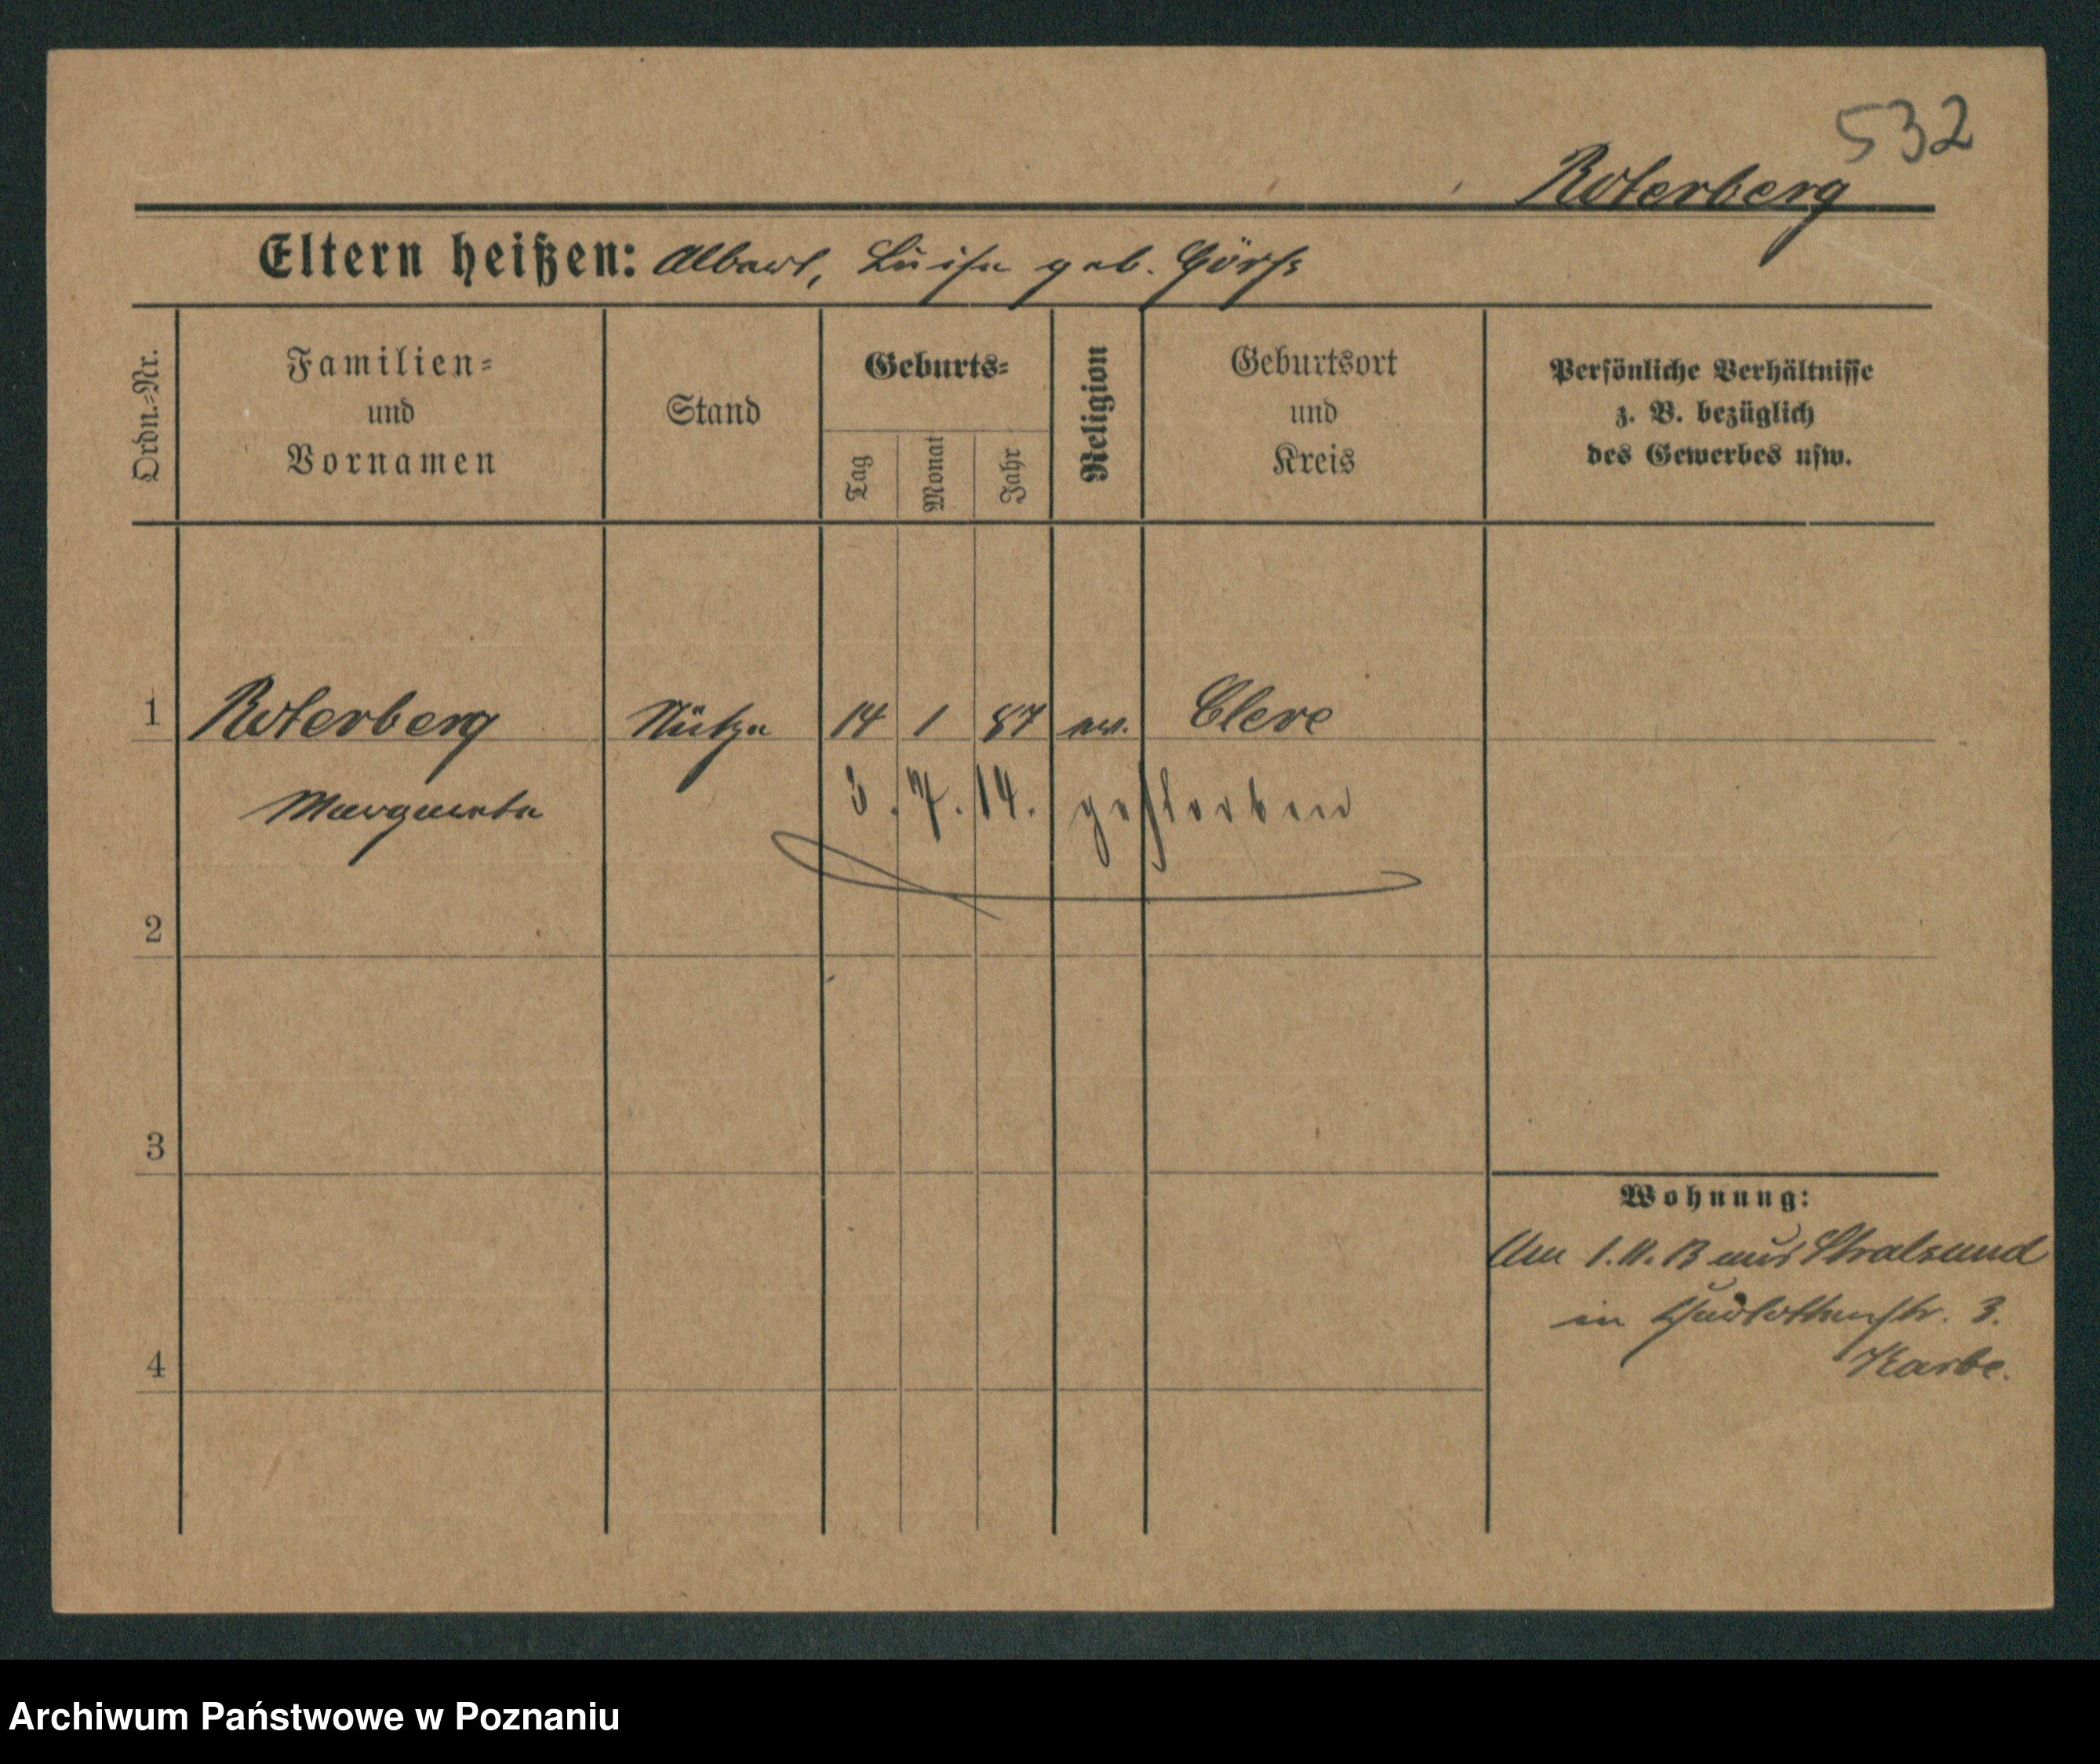 532
Roterberg
Eltern heißen: Albert, Luise geb. Görß
Ordn.=Nr.
Familien=
und
Vornamen
Stand
Geburts=
Tag
Monat
Jahr
Religion
Geburtsort
und
Kreis
Persönliche Verhältnisse
z. B. bezüglich
des Gewerbes usw.
1 Roterberg Stütze 14 1 87 ev. Cleve
Margarete 3. 7. 14. gestorben
2
3
4
Wohnung:
Am 1.11.13 aus Stralsund
in Charlottenstr. 3.
Karbe.
Archiwum Państwowe w Poznaniu